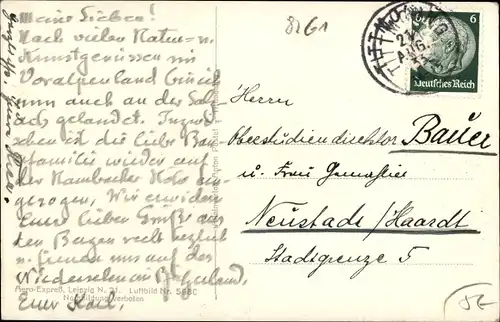 meine Lieben!
Nach vielen Natur- u.
Kunstgenüssen im
Voralpenland bin ich
nun auch an der Salz-
ach gelandet. Inzwi-
schen ist die liebe Bau-
familie wieder auf
der Hambacher
gezogen. Wir erwidern
Eure lieben Grüße aus
Bozen recht herzlich
u. freuen uns auf das
Wiedersehen
Euer Karl.
8261
TITTMONING
21
AUG.
6
Deutsches Reich
Herrn
Oberstudiendirektor Bauer
u. Frau Gemahlin
Neustadt/Haardt
Stadtgrenze 5
Aero-Expreß, Leipzig N. 21. Luftbild Nr. 5680
Nachbildung verboten